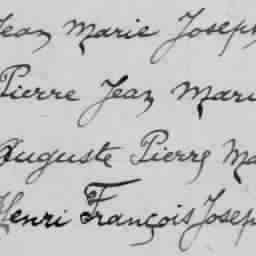 Jean Marie Joseph
Pierre Jean Mari
Auguste Pierre Ma
Henri François Joseph